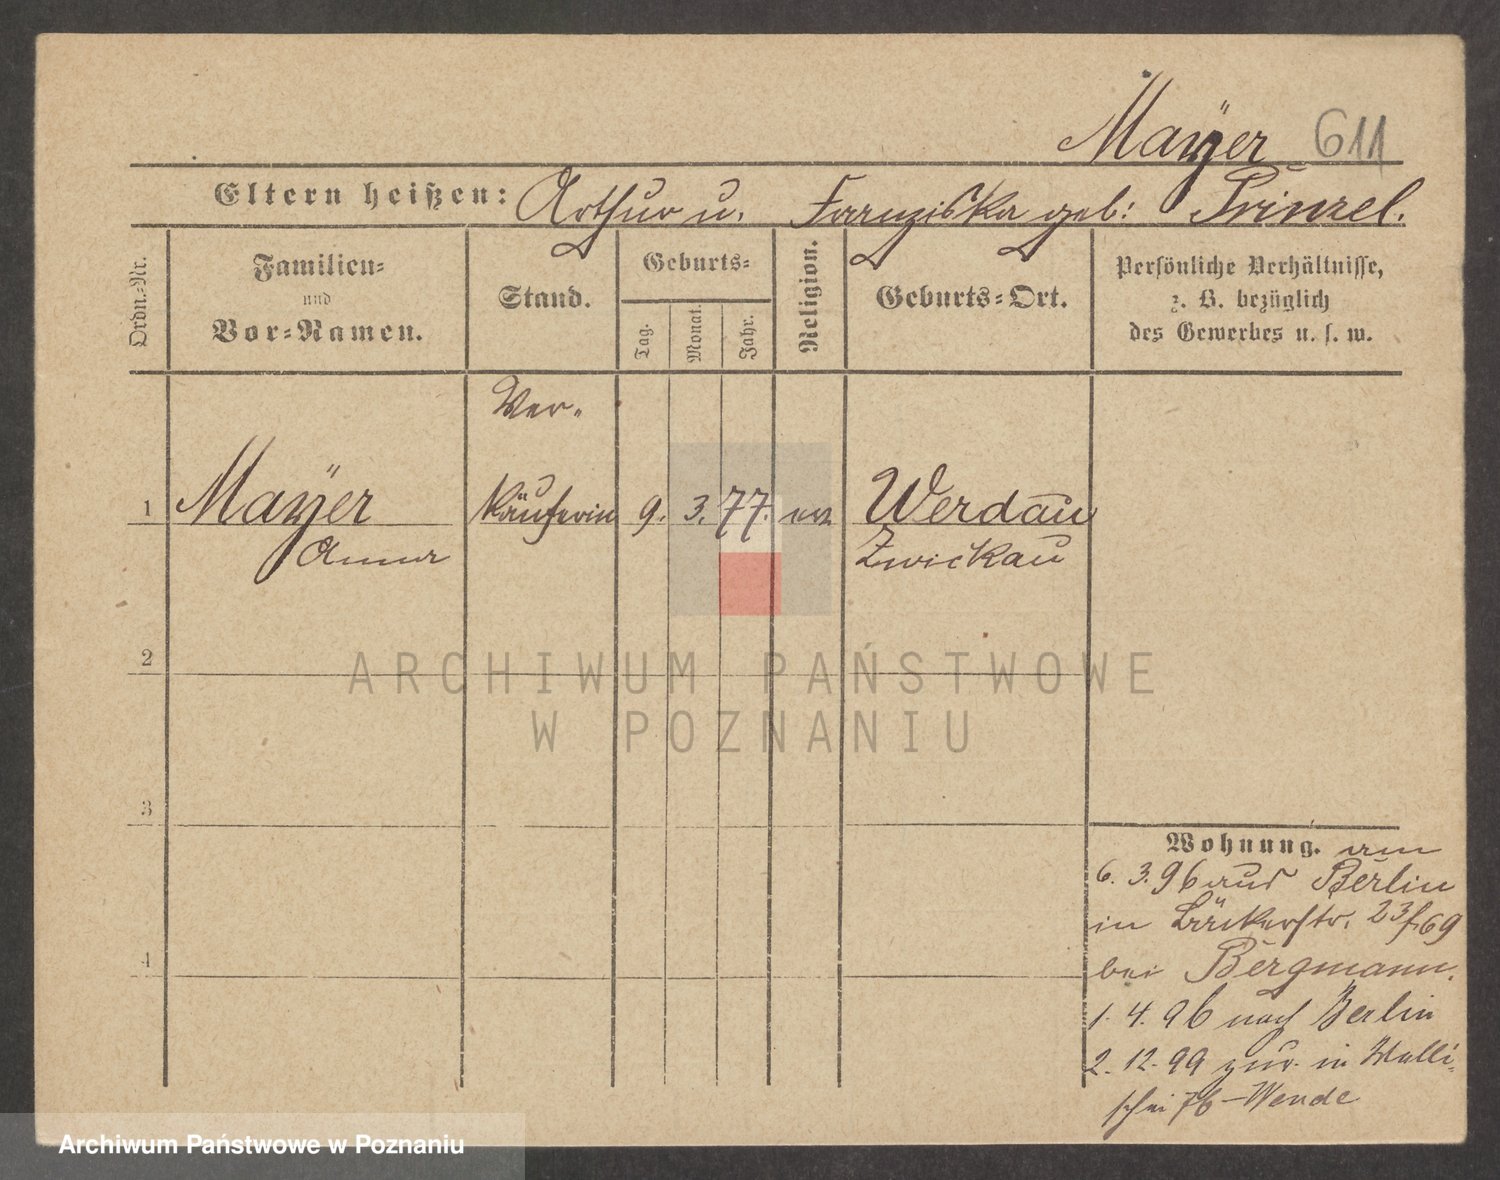 Mayer 611
Eltern heißen: Arthur u. Franziska geb: Prinzel.
Ordn.-Nr.
Familien-
und
Vor-Namen.
Stand.
Geburts-
Tag.
Monat.
Jahr.
Religion.
Geburts-Ort.
Persönliche Verhältnisse,
z. B. bezüglich
des Gewerbes u. s. w.
Ver-
1 Mayer käuferin 9. 3. 77. Werdau
Anna Zwickau
2
ARCHIWUM PAŃSTWOWE
W POZNANIU
3
Wohnung. am
6. 3. 96 aus Berlin
in Bäckerstr. 23
bei Bergmann.
4
1. 4. 96 nach Berlin
2. 12. 99 zur. in Walli-
schei 76 - Wende
Archiwum Państwowe w Poznaniu